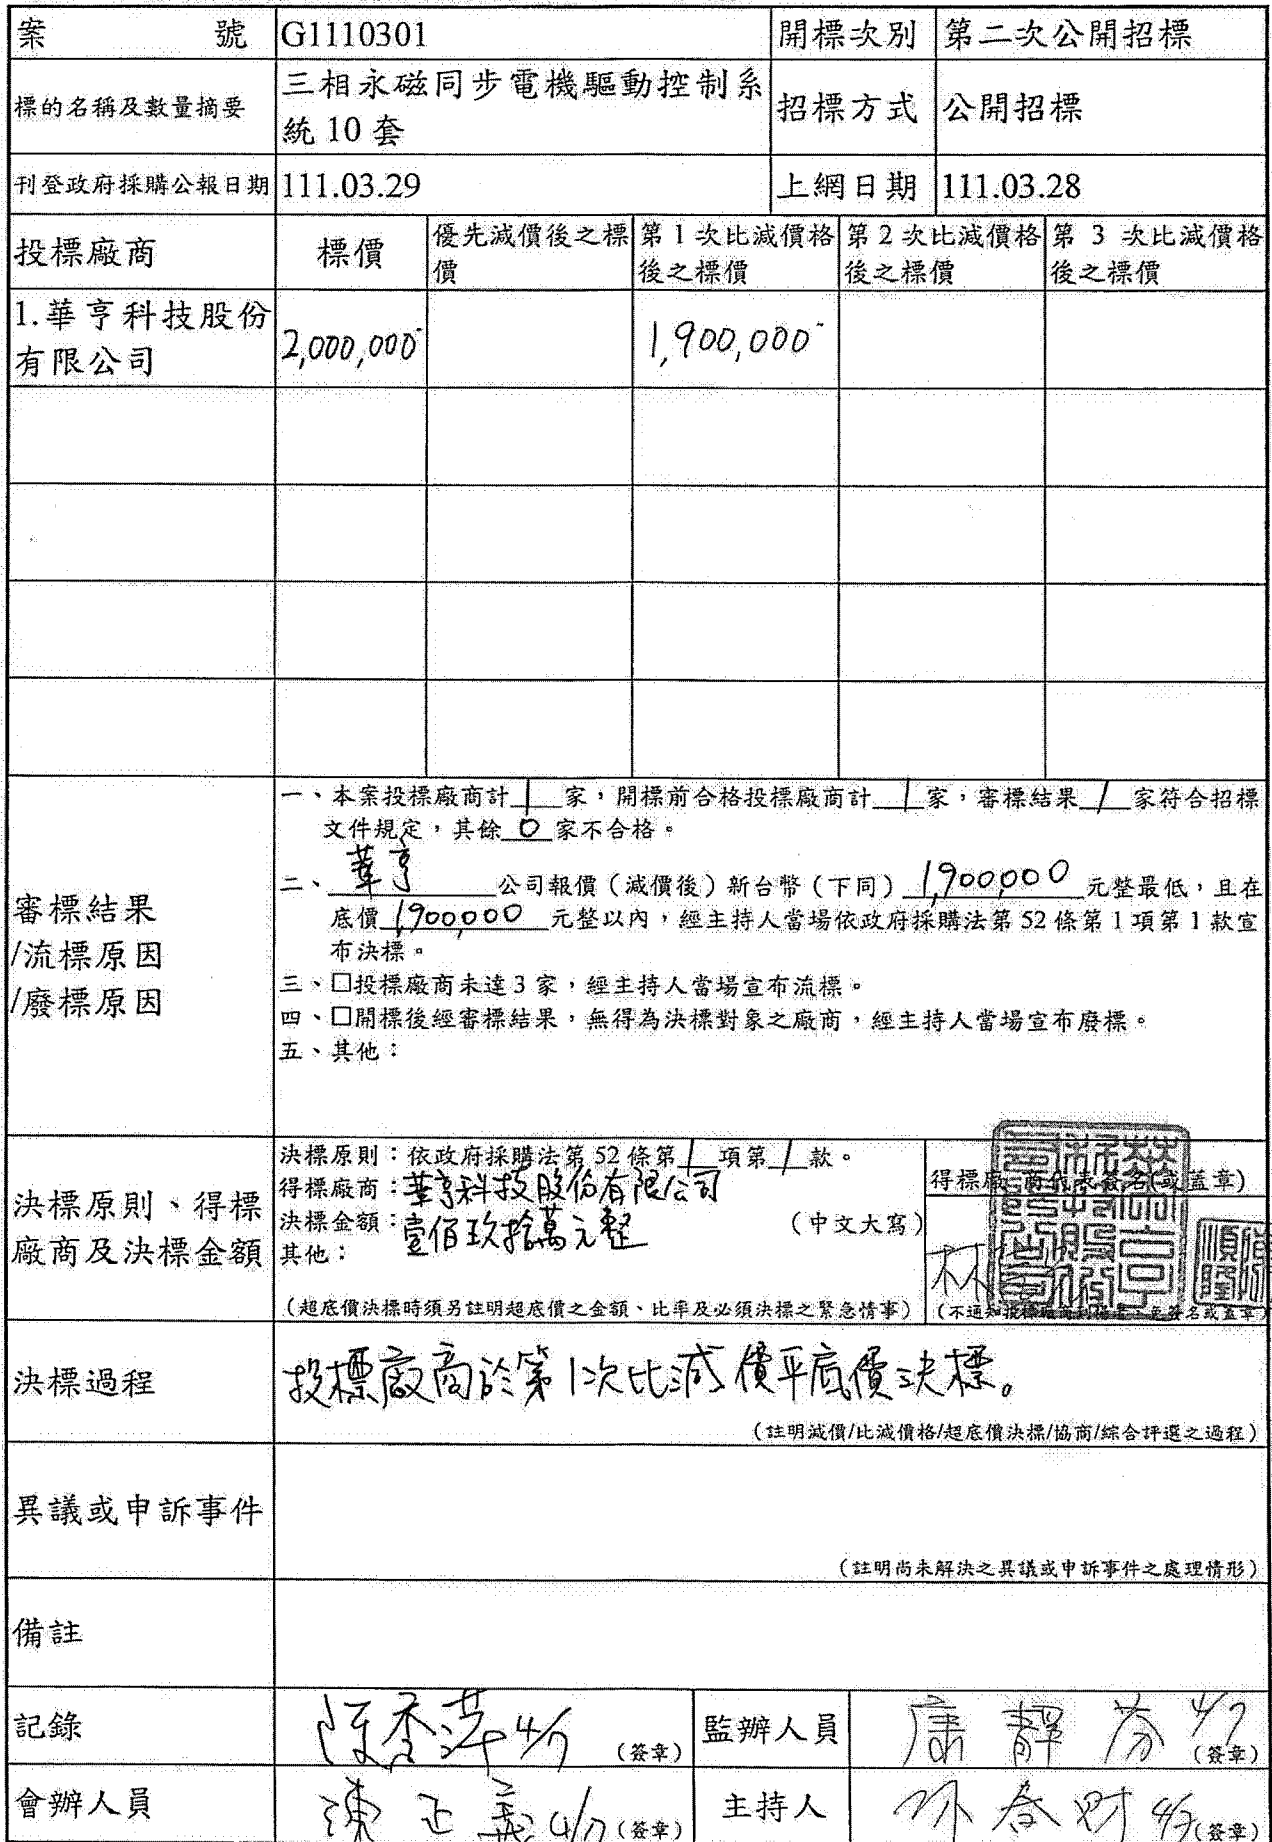 案 號 G1110301 開標次別 第二次公開招標
標的名稱及數量摘要 三相永磁同步電機驅動控制系
統 10 套
招標方式 公開招標
刊登政府採購公報日期 111.03.29 上網日期 111.03.28
投標廠商 標價 優先減價後之標
價
第 1 次比減價格
後之標價
第 2 次比減價格
後之標價
第 3 次比減價格
後之標價
1.華亨科技股份
有限公司
2,000,000 1,900,000
審標結果
/流標原因
/廢標原因
一、本案投標廠商計 1 家，開標前合格投標廠商計 1 家，審標結果 1 家符合招標
文件規定，其餘 0 家不合格。
二、華亨 公司報價（減價後）新台幣（下同） 1,900,000 元整最低，且在
底價 1,900,000 元整以內，經主持人當場依政府採購法第 52 條第 1 項第 1 款宣
布決標。
三、□投標廠商未達 3 家，經主持人當場宣布流標。
四、□開標後經審標結果，無得為決標對象之廠商，經主持人當場宣布廢標。
五、其他：
決標原則、得標
廠商及決標金額
決標原則：依政府採購法第 52 條第 1 項第 1 款。
得標廠商：華亨科技股份有限公司
決標金額：壹佰玖拾萬元整 （中文大寫）
其他：
（超底價決標時須另註明超底價之金額、比率及必須決標之緊急情事）
得標廠商代表簽名(或蓋章)
林
決標過程 投標廠商於第1次比減價平底價決標。
（註明減價/比減價格/超底價決標/協商/綜合評選之過程）
異議或申訴事件
（註明尚未解決之異議或申訴事件之處理情形）
備註
記錄 4/7 （簽章） 監辦人員 康靜芬 4/7 （簽章）
會辦人員 陳正義 4/7 （簽章） 主持人 4/7 （簽章）